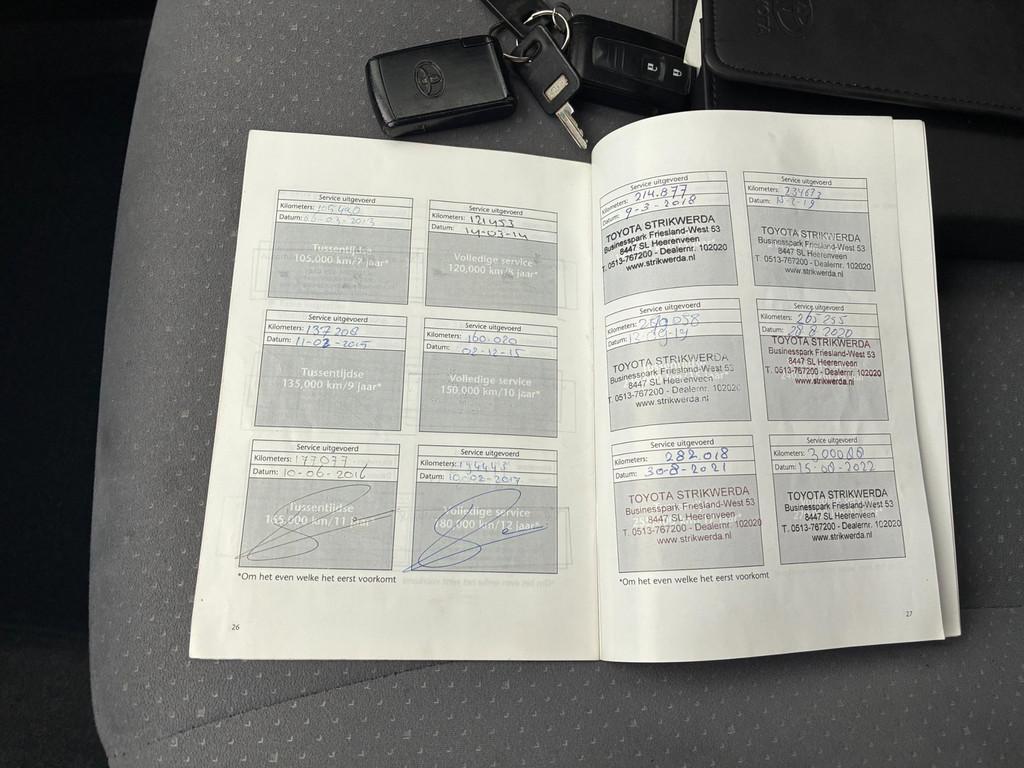 TOYOTA
Service uitgevoerd
Kilometers: 105.490
Datum: 06-03-2013
Tussentijdse
105,000 km/7 jaar*
Service uitgevoerd
Kilometers: 121453
Datum: 14-03-14
Volledige service
120,000 km/8 jaar*
Service uitgevoerd
Kilometers: 137208
Datum: 11-03-2015
Tussentijdse
135,000 km/9 jaar*
Service uitgevoerd
Kilometers: 160.020
Datum: 02-12-15
Volledige service
150,000 km/10 jaar*
Service uitgevoerd
Kilometers: 177077
Datum: 10-06-2016
Tussentijdse
165,000 km/11 jaar
Service uitgevoerd
Kilometers: 194445
Datum: 10-02-2017
Volledige service
180,000 km/12 jaar*
*Om het even welke het eerst voorkomt
26
Service uitgevoerd
Kilometers: 214.877
Datum: 9-3-2018
TOYOTA STRIKWERDA
Businesspark Friesland-West 53
8447 SL Heerenveen
T. 0513-767200 - Dealernr. 102020
www.strikwerda.nl
Service uitgevoerd
Kilometers: 234673
Datum:
TOYOTA STRIKWERDA
Businesspark Friesland-West 53
8447 SL Heerenveen
T. 0513-767200 - Dealernr. 102020
www.strikwerda.nl
Service uitgevoerd
Kilometers:
Datum: 13-09-19
TOYOTA STRIKWERDA
Businesspark Friesland-West 53
8447 SL Heerenveen
T. 0513-767200 - Dealernr. 102020
www.strikwerda.nl
Service uitgevoerd
Kilometers: 265255
Datum: 28-8-2020
TOYOTA STRIKWERDA
Businesspark Friesland-West 53
8447 SL Heerenveen
T. 0513-767200 - Dealernr. 102020
www.strikwerda.nl
Service uitgevoerd
Kilometers: 282.018
Datum: 30-8-2021
TOYOTA STRIKWERDA
Businesspark Friesland-West 53
8447 SL Heerenveen
T. 0513-767200 - Dealernr. 102020
www.strikwerda.nl
Service uitgevoerd
Kilometers: 300000
Datum: 15-08-2022
TOYOTA STRIKWERDA
Businesspark Friesland-West 53
8447 SL Heerenveen
T. 0513-767200 - Dealernr. 102020
www.strikwerda.nl
*Om het even welke het eerst voorkomt
27